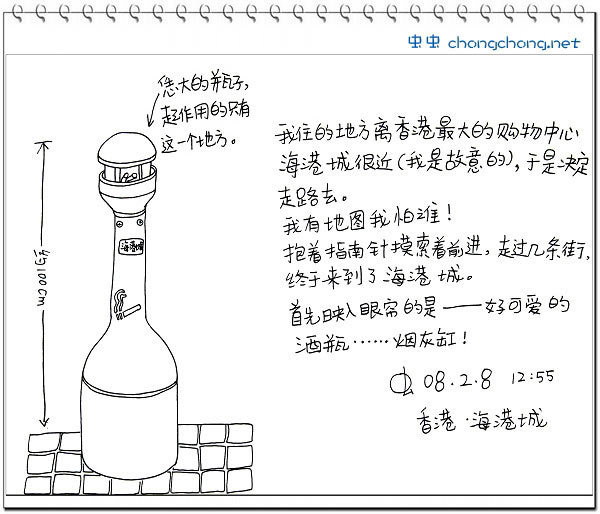 虫虫 chongchong.net
恁大的瓶子,
起作用的只有
这一个地方。
海港城
约100cm
我住的地方离香港最大的购物中心
海港城很近(我是故意的),于是决定
走路去。
我有地图我怕谁!
抱着指南针摸索着前进,走过几条街,
终于来到了海港城。
首先映入眼帘的是——好可爱的
酒瓶……烟灰缸!
08.2.8 12:55
香港·海港城